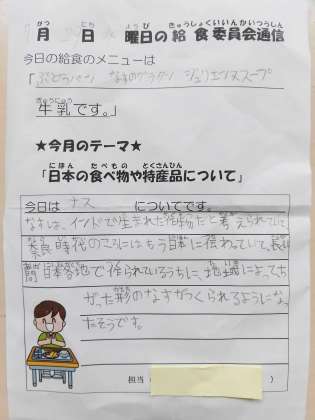 月　日　曜日の給食委員会通信
今日の給食のメニューは
「ぶどうパン　なすのグラタン　ジュリエンヌスープ
牛乳です。」
★今月のテーマ★
「日本の食べ物や特産品について」
今日は　ナス　についてです。
なすは、インドで生まれた作物だと考えられていて、
奈良時代のころにはもう日本に伝わっていて、長い
間日本各地で作られているうちに、地域によってち
がった形のなすがつくられるようにな
たそうです。
担当（　）